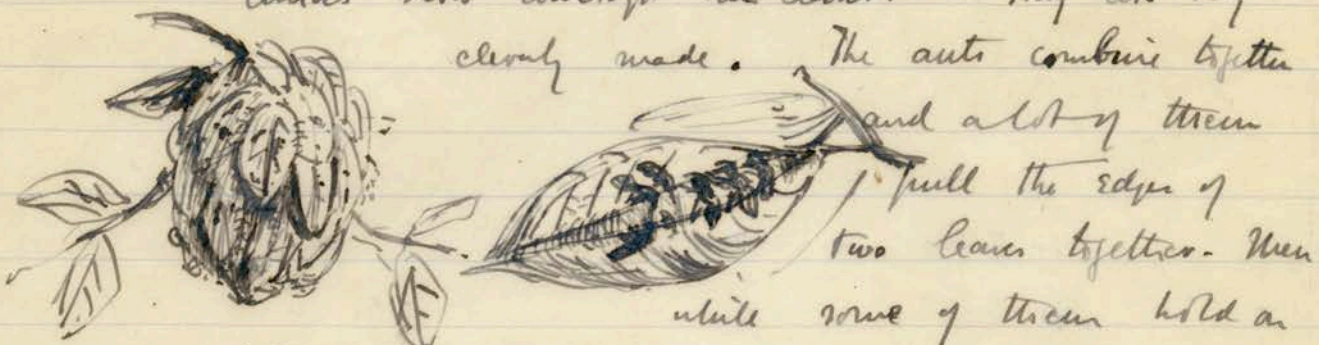 cleverly made. The ants combine together
and a lot of them
pull the edges of
two leaves together. Then
while some of them hold on